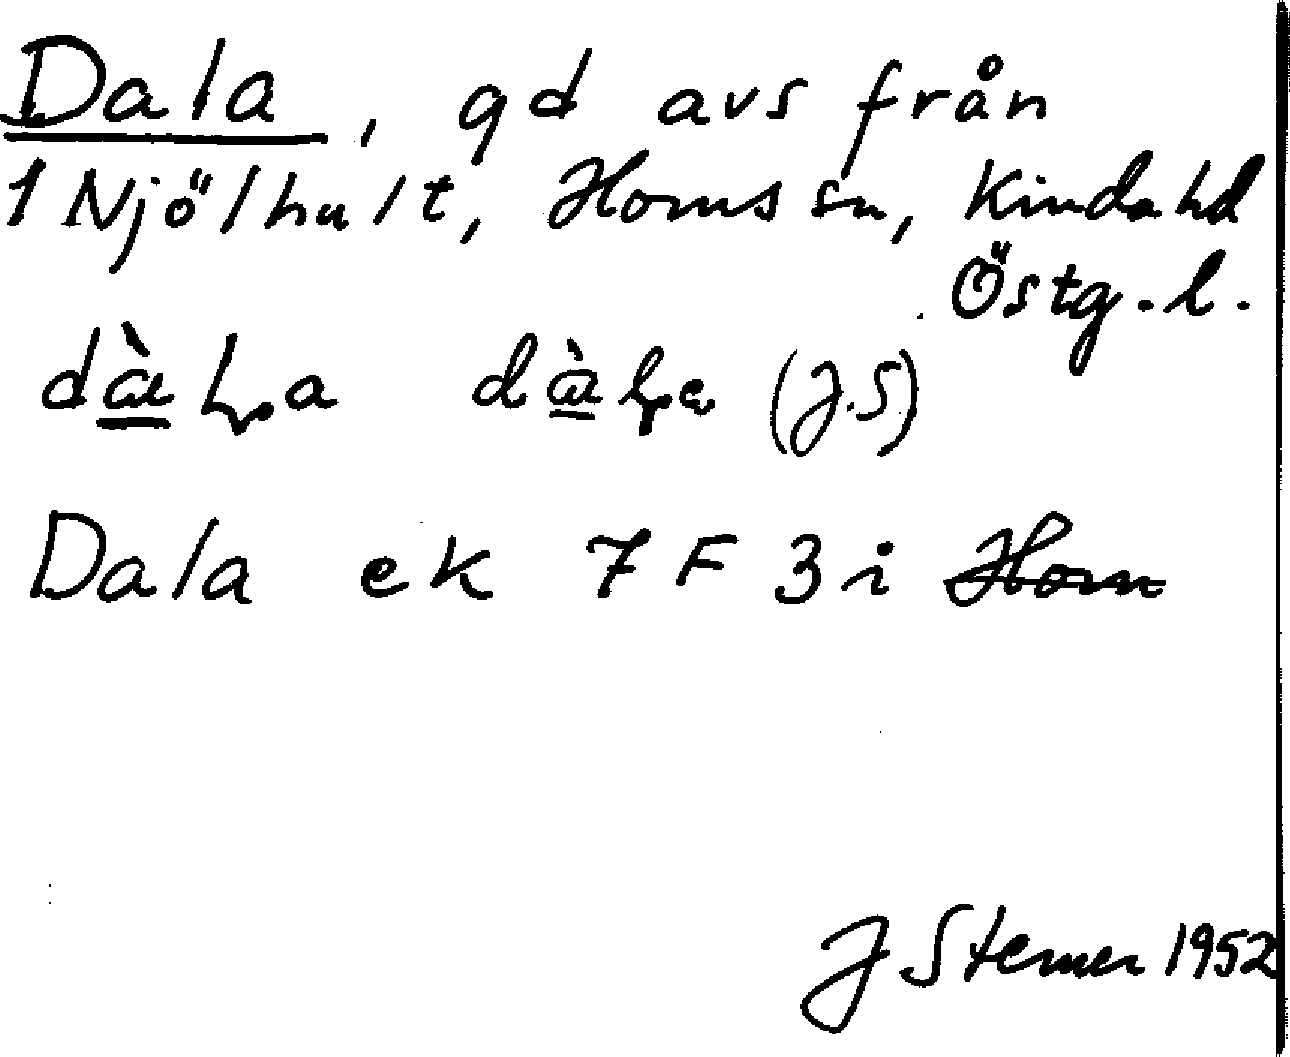 Dala, gd avs från
1 Njölhult, Horns sn, Kinda hd
Östg. l.
(J.S)
Dala ek 7 F 3 i Horn
J Sterner 1952